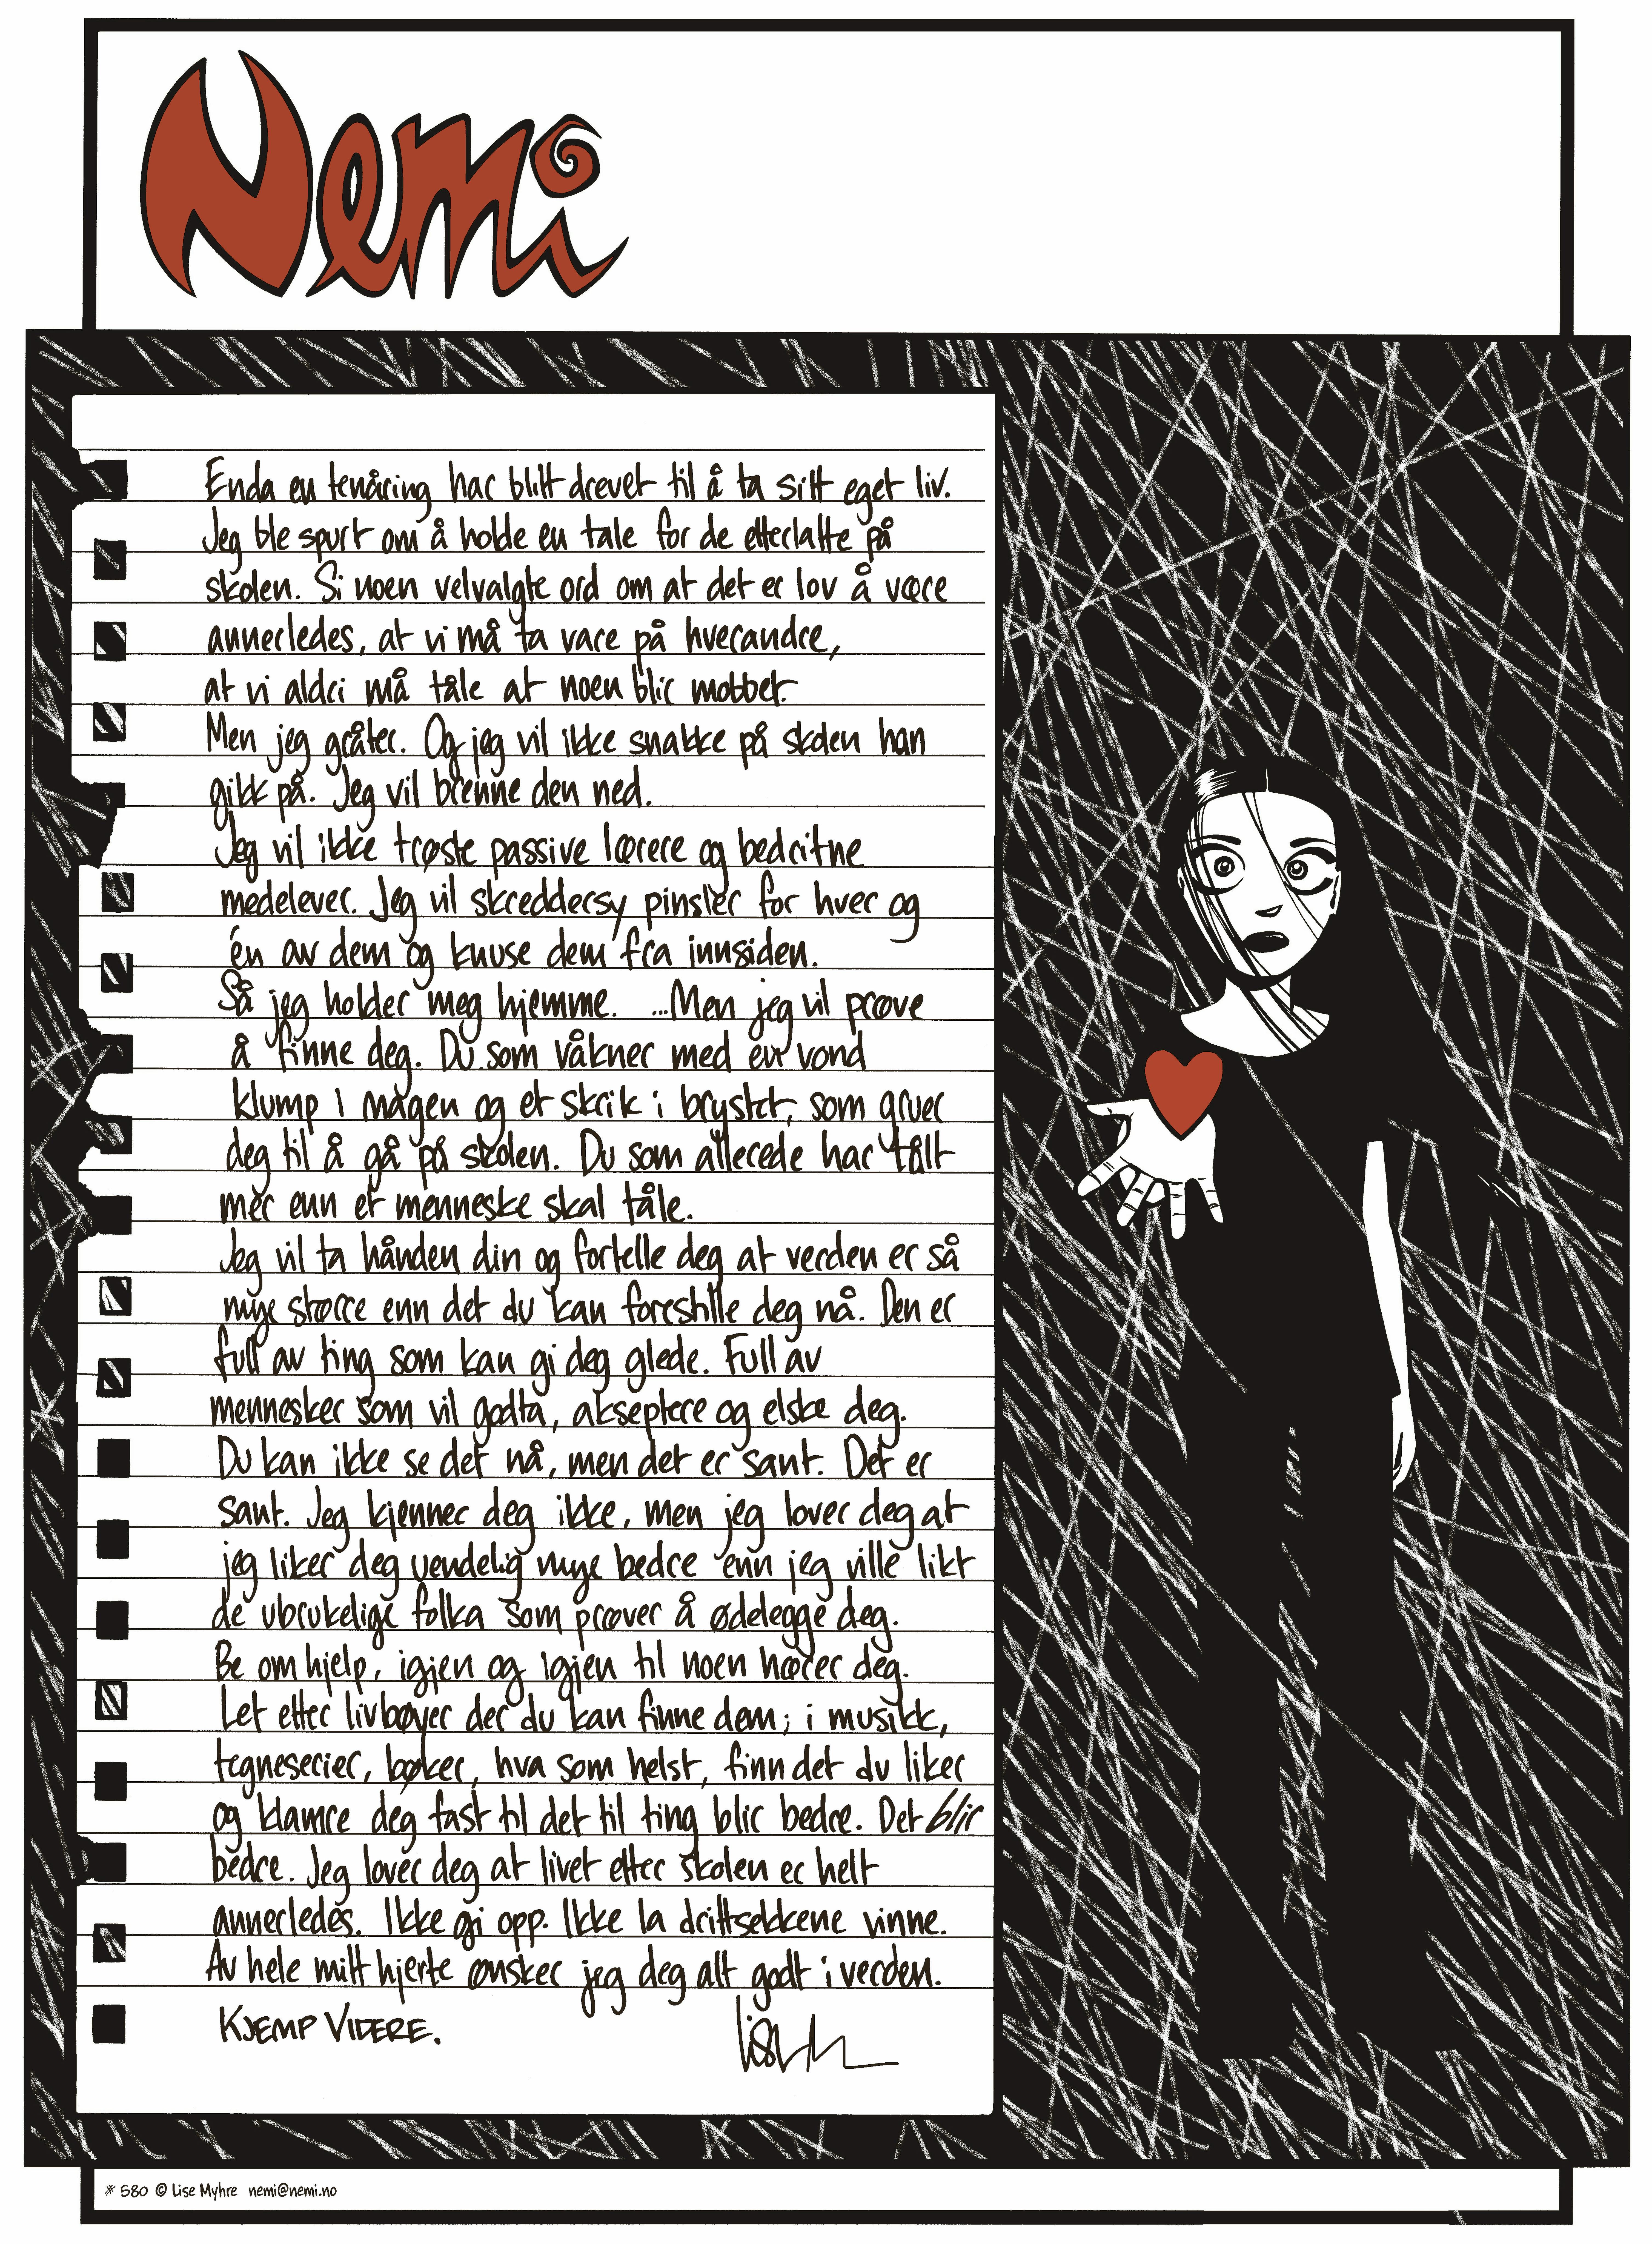 Nemi
Enda en tenåring har blitt drevet til å ta sitt eget liv.
Jeg ble spurt om å holde en tale for de etterlatte på
skolen. Si noen velvalgte ord om at det er lov å være
annerledes, at vi må ta vare på hverandre,
at vi aldri må tåle at noen blir mobbet.
Men jeg gråter. Og jeg vil ikke snakke på skolen han
gikk på. Jeg vil brenne den ned.
Jeg vil ikke trøste passive lærere og bedritne
medelever. Jeg vil skreddersy pinsler for hver og
én av dem og knuse dem fra innsiden.
Så jeg holder meg hjemme. ...Men jeg vil prøve
å finne deg. Du som våkner med en vond
klump i magen og et skrik i brystet, som gruer
deg til å gå på skolen. Du som allerede har tålt
mer enn et menneske skal tåle.
Jeg vil ta hånden din og fortelle deg at verden er så
mye større enn det du kan forestille deg nå. Den er
full av ting som kan gi deg glede. Full av
mennesker som vil godta, akseptere og elske deg.
Du kan ikke se det nå, men det er sant. Det er
sant. Jeg kjenner deg ikke, men jeg lover deg at
jeg liker deg uendelig mye bedre enn jeg ville likt
de ubrukelige folka som prøver å ødelegge deg.
Be om hjelp, igjen og igjen til noen hører deg.
Let etter livbøyer der du kan finne dem; i musikk,
tegneserier, bøker, hva som helst, finn det du liker
og klamre deg fast til det til ting blir bedre. Det blir
bedre. Jeg lover deg at livet etter skolen er helt
annerledes. Ikke gi opp. Ikke la drittsekkene vinne.
Av hele mitt hjerte ønsker jeg deg alt godt i verden.
KJEMP VIDERE.
* 580 © Lise Myhre nemi@nemi.no